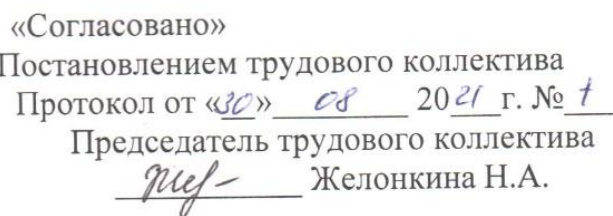 «Согласовано»
Постановлением трудового коллектива
Протокол от «30» 08 2021 г. № 1
Председатель трудового коллектива
Желонкина Н.А.